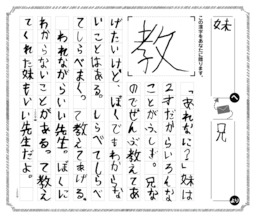 妹
へ
兄
この漢字をあなたに贈ります。
教
「あれなに?」妹は
2才だからいろんな
ことがふしぎ。兄な
のでぜんぶ教えてあ
げたいけど、ぼくでもわからな
いことはある。しらべてしらべ
てしらべまくって教えてあげる。
われながらいい先生。ぼくに
わからないことがある。って教え
てくれた妹もいい先生だよ。